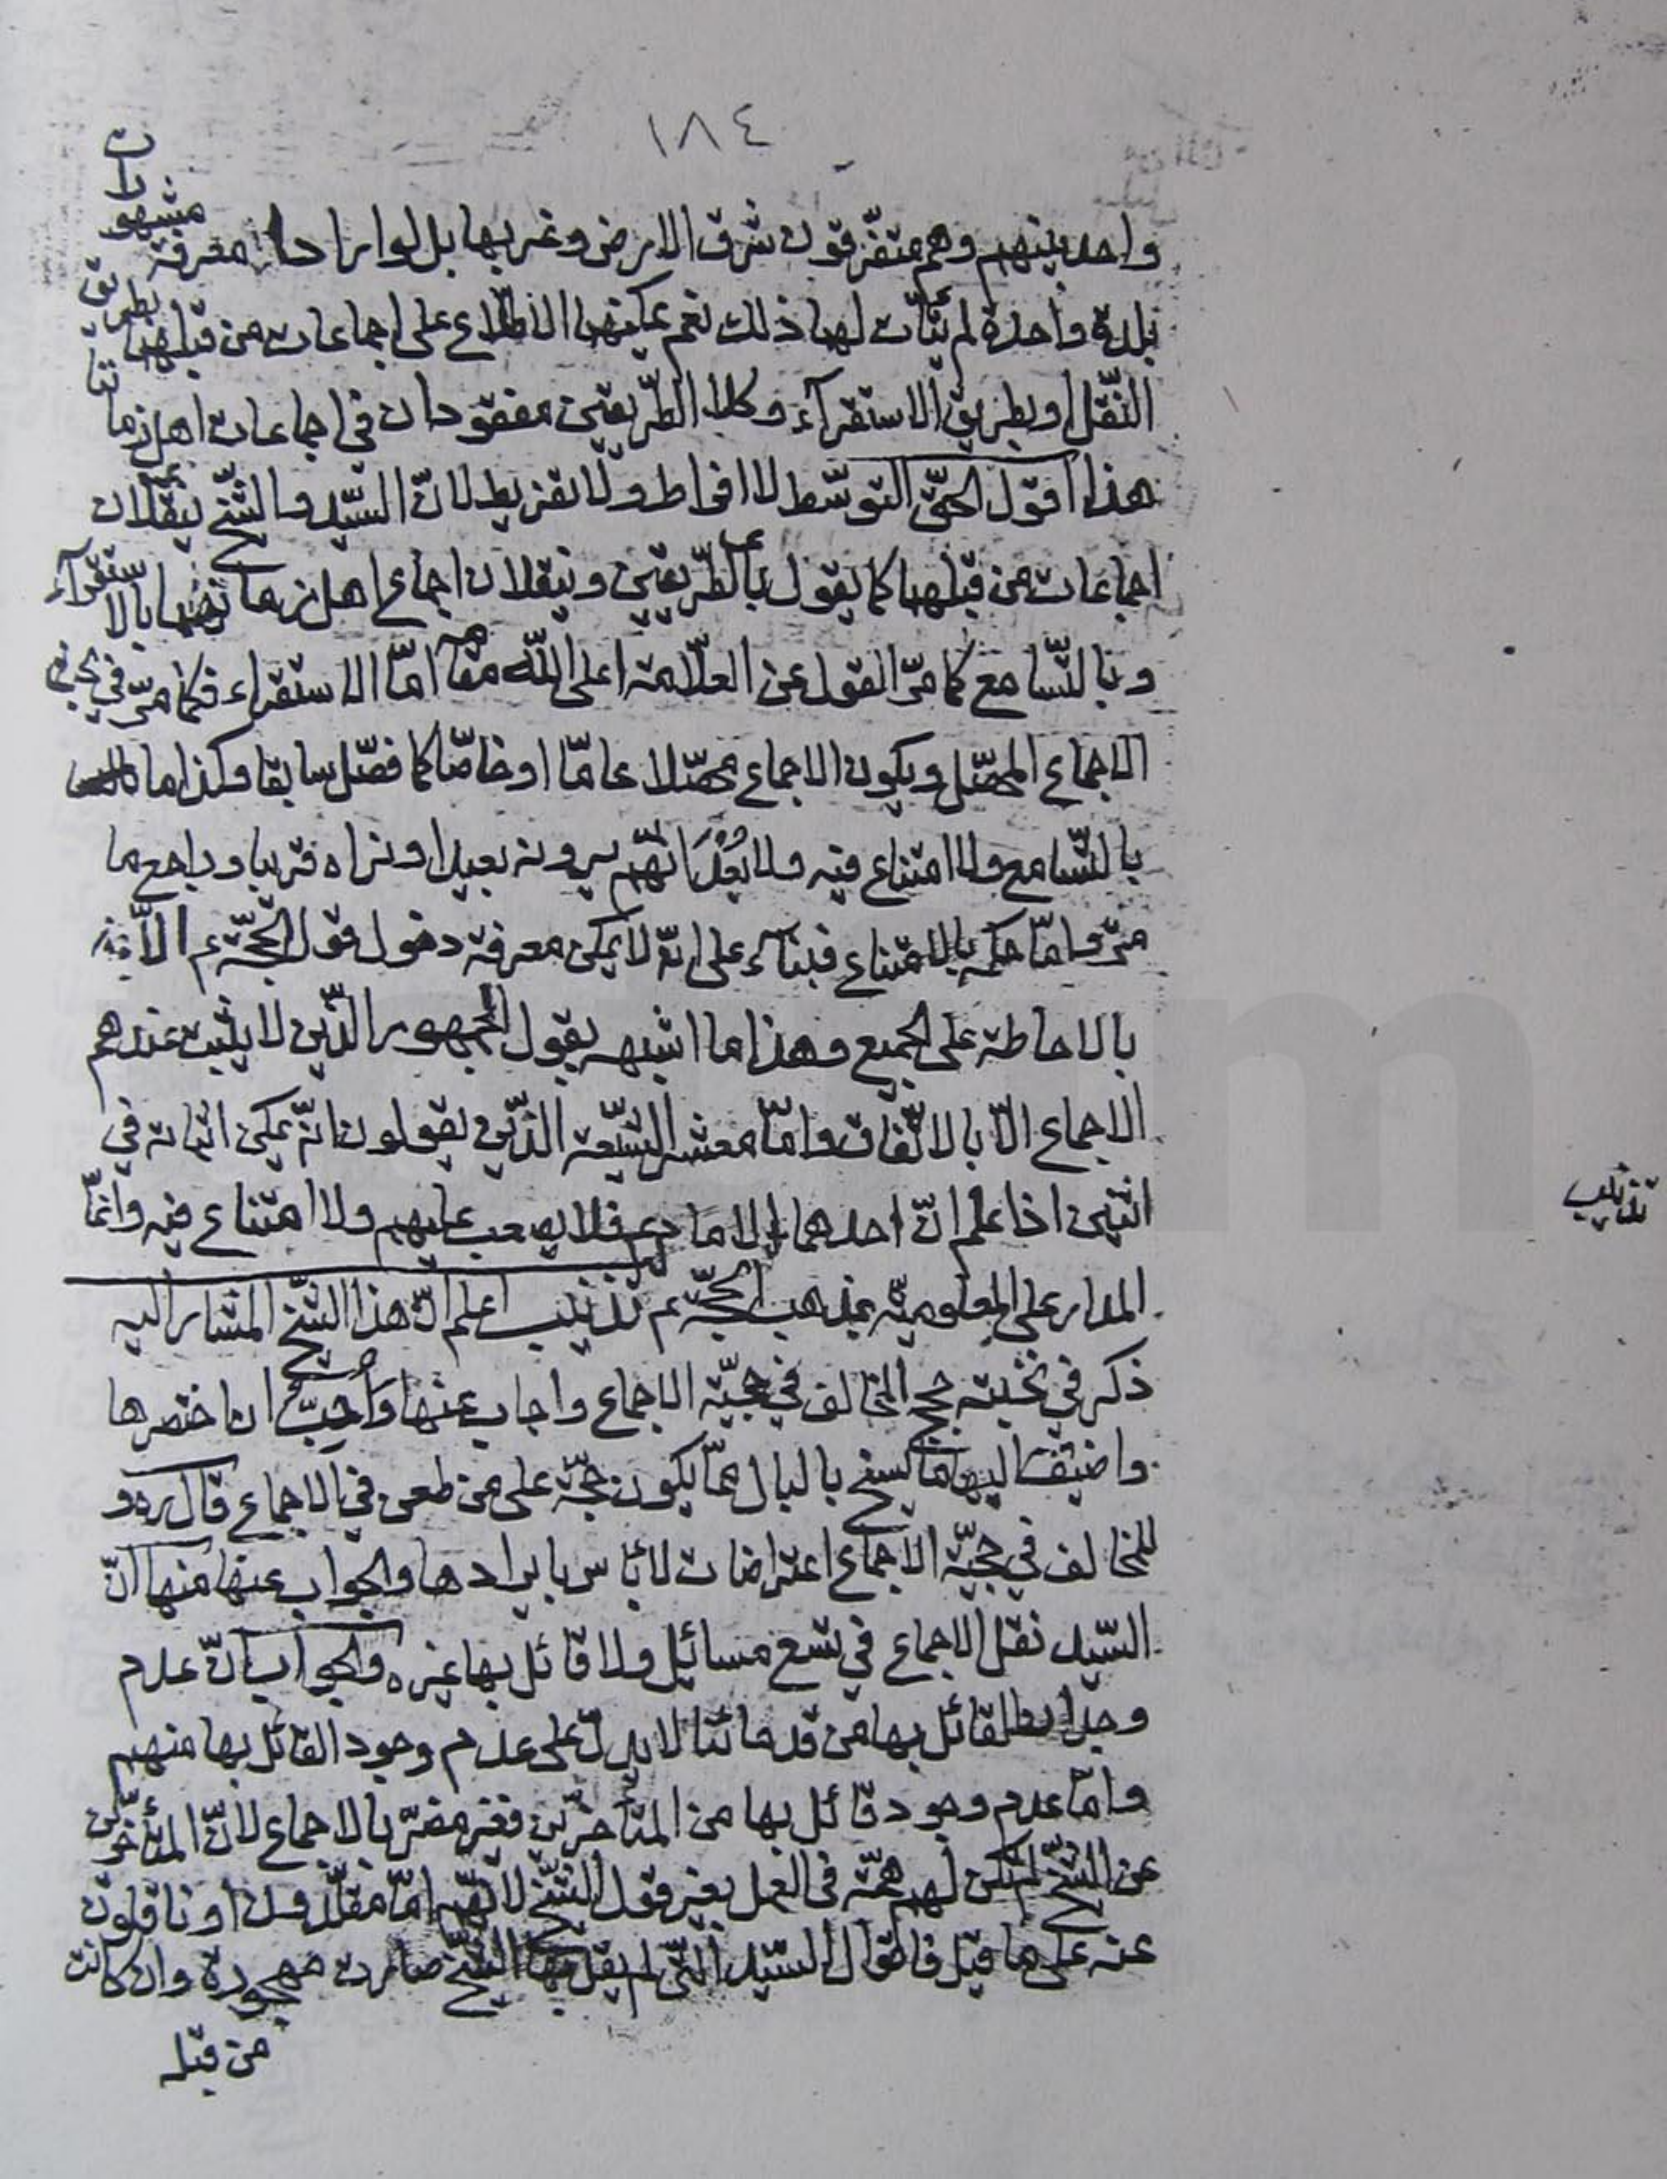 ١٨٤
واحد بينهم وهم متفرّقون شرق الارض وغربها بل لو ارادا معرفة مشهورات
بلدة واحدة لم يتأت لهما ذلك نعم يمكنهما الاطّلاع على اجماعات من قبلهما بطريق
النّقل او بطريق الاستقرآء وكلا الطّريقين مفقودان في اجماعات اهل زماننا
هذا اقول الحقّ التوسّط لا افراط ولا تفريط لانّ السّيد والشّيخ ينقلان
اجماعات من قبلهما كما يقول بالطّريقين وينقلان اجماع اهل زمانهما بالاستقرآء
وبالتّسامع كما مرّ القول عن العلّامة اعلى اللّه مقامه امّا الاستقراء فكما مرّ في
الاجماع المحصّل ويكون الاجماع محصّلا عامّا او خاصّا كما فصّل سابقا وكذا ما
بالتّسامع ولا امتناع فيه ولا بُعْدَ انّهم يرونه بعيدا ونراه قريبا وراجع ما
مرّ وامّا حكمه بالامتناع فبناء على انّه لا يمكن معرفة دخول قول الحجّة ع الّا
بالاحاطة على الجميع وهذا ما اشبهه بقول الجمهور الّذين لا يثبت عندهم
الاجماع الّا بالاتّفاق وامّا معشر الشّيعة الذّين يقولون انّه يمكن اثباته في
اثنين اذا علم انّ احدهما الامام ع فلا يصعب عليهم ولا امتناع فيه وانّما
المدار على المعلوميّة بمذهب الحجّة ع تذنيب اعلم انّ هذا الشّيخ المشار اليه
تذنيب
ذكر في نخبته حجج المخالف في حجيّة الاجماع واجاب عنها وَاُحِبُّ ان اختصرها
واضيف اليها ما يسنح بالبال ممّا يكون حجّة على من طعن في الاجماع قال ره و
للمخالف في حجيّة الاجماع اعتراضات لا بأس بايرادها والجواب عنها منها انّ
السّيد نقل الاجماع في تسع مسائل ولا قائل بها غيره والجواب انّ عدم
القائل بها من قدمائنا لا يدلّ على عدم وجود القائل بها منهم
وامّا عدم وجود قائل بها من المتأخرّين فغير مضرّ بالاجماع لانّ المتأخّرين
عن الشّيخ لم تكن لهم همّة في العمل بغير قول الشّيخ لانّهم امّا مقلّدون او ناقلون
عنه على ما قيل فاقوال السّيد الّتي لم يقل بها الشّيخ صارت مهجورة وان كانت
من قبله